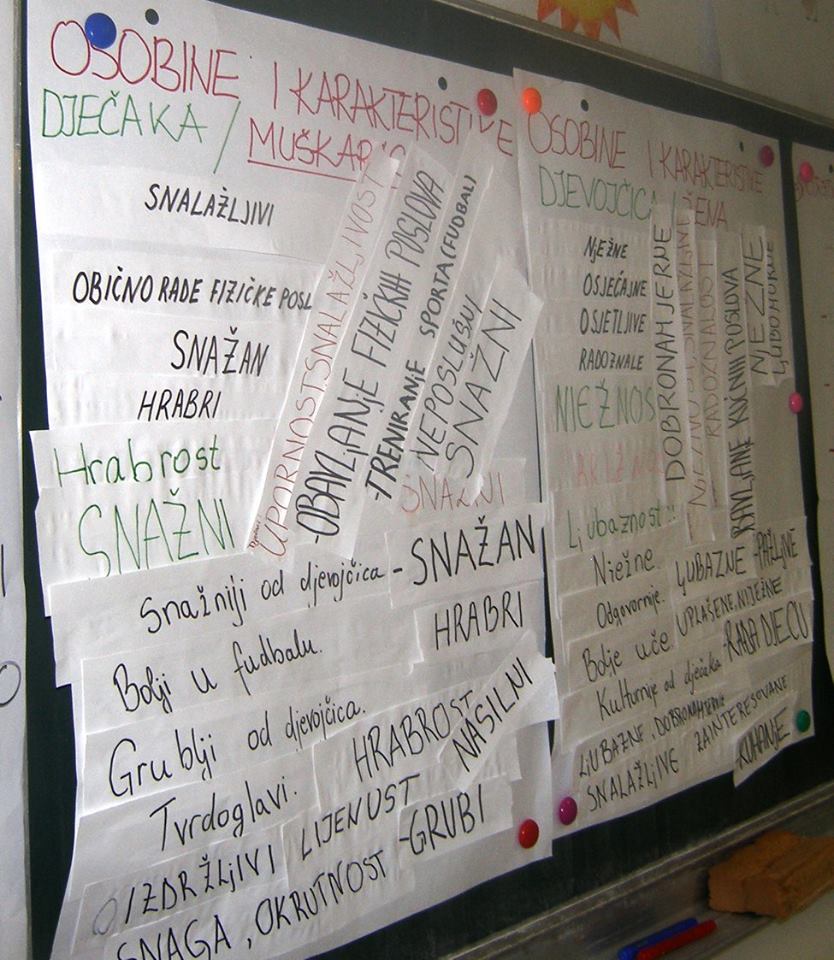 OSOBINE I KARAKTERISTIKE
DJEČAKA / MUŠKAR
SNALAŽLJIVI
OBIČNO RADE FIZIČKE POSL
SNAŽAN
HRABRI
Hrabrost
SNAŽNI
UPORNOST, SNALAŽLJIVOST
-OBAVLJANJE FIZIČKIH POSLOVA
-TRENIRANJE SPORTA (FUDBAL)
NEPOSLUŠNI
SNAŽNI
SNAŽNI
Snažniji od djevojčica
-SNAŽAN
Bolji u fudbalu.
HRABRI
Grublji od djevojčica.
HRABROST
NASILNI
Tvrdoglavi.
LIJENUST
IZDRŽLJIVI
-GRUBI
SNAGA, OKRUTNOST
OSOBINE I KARAKTERISTIKE
DJEVOJČICA / ŽENA
NJEŽNE
OSJEĆAJNE
OSJETLJIVE
RADOZNALE
NJEŽNOS
DOBRONAMJERNE
NJEŽNOST, SNALAŽLJIV
RADOZNALOST
BAVLJANJE KUĆNIH POSLOVA
NJEŽNE
LJUBOMORNE
Ljubaznost
Nježne.
LJUBAZNE
-PAŽLJIVE
Odgovornije.
UPLAŠENE, NJEŽNE
Bolje uče
-RAĐA DJECU
Kulturnije od dječaka
LJUBAZNE, DOBRONAMJERNE
SNALAŽLJIVE ZAINTERESOVANE
-KUHANJE